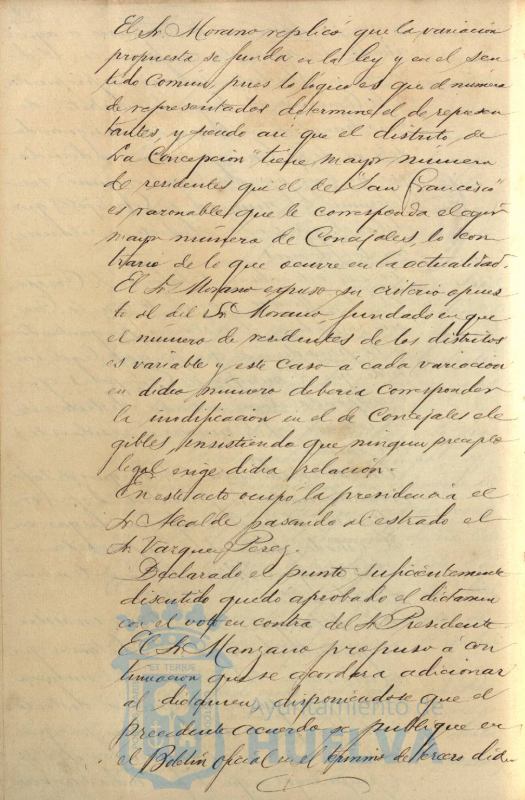 El Sr. Morano replicó que la variación
propuesta se funda en la ley y en el sen
tido comun, pues lo lógico es que el número
de representados determine el de represen
tantes, y siendo asi que el distrito de
"La Concepcion" tiene mayor número
de residentes que el de "San Francisco"
es razonable que le corresponda elegir
mayor número de Concejales, lo con
trario de lo que ocurre en la actualidad.
El Sr. expuso su criterio opues
to al del Sr. Morano, fundado en que
el numero de residentes de los distritos
es variable y este caso á cada variacion
en dicho número deberia corresponder
la modificacion en el de Concejales ele
gibles, insistiendo que ningun precepto
legal exige dicha relación.
En este acto ocupó la presidencia el
Sr. Alcalde pasando al estrado el
Sr. Vazquez Perez.
Declarado el punto suficientemente
discutido quedo aprobado el dictamen
con el voto en contra del Sr. Presidente
El Sr. Manzano propuso á con
tinuacion que se acordara adicionar
al dictamen, disponiendose que el
precedente acuerdo se publique en
el Boletin oficial en el termino de tercero dia
Ayuntamiento de
HUELVA